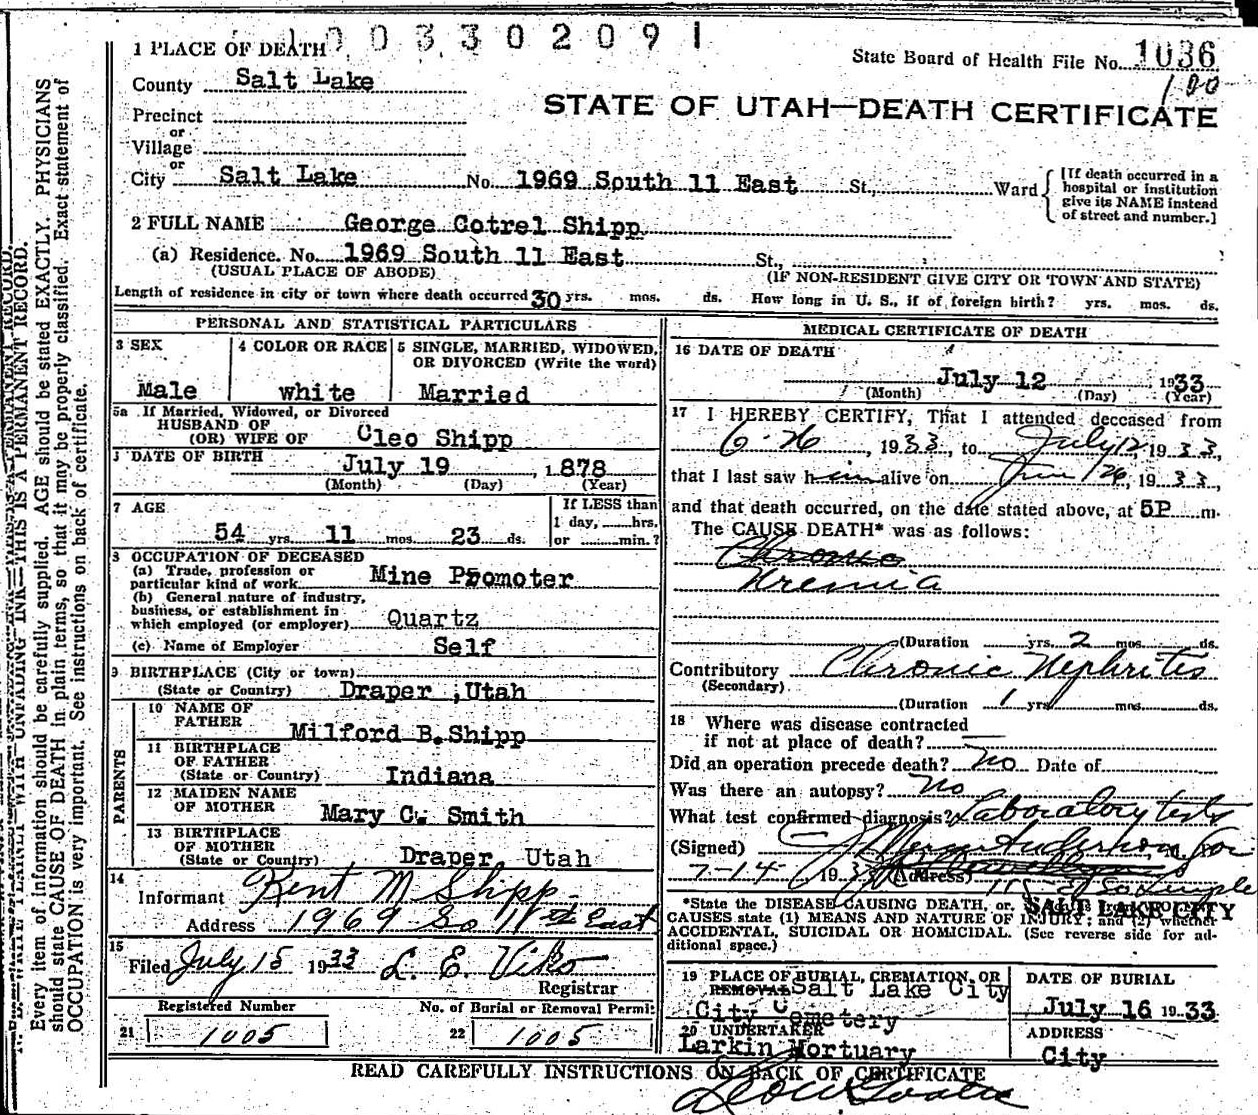 1003302091
1 PLACE OF DEATH
State Board of Health File No. 1036
100
County Salt Lake
STATE OF UTAH—DEATH CERTIFICATE
Precinct
or
Village
or
City Salt Lake No. 1969 South 11 East St., Ward
[If death occurred in a hospital or institution give its NAME instead of street and number.]
2 FULL NAME George Cotrel Shipp
(a) Residence. No. 1969 South 11 East St.,
(USUAL PLACE OF ABODE) (IF NON-RESIDENT GIVE CITY OR TOWN AND STATE)
Length of residence in city or town where death occurred 30 yrs. mos. ds. How long in U. S., if of foreign birth? yrs. mos. ds.
PERSONAL AND STATISTICAL PARTICULARS
3 SEX
Male
4 COLOR OR RACE
white
5 SINGLE, MARRIED, WIDOWED, OR DIVORCED (Write the word)
Married
5a If Married, Widowed, or Divorced
HUSBAND OF
(OR) WIFE OF Cleo Shipp
DATE OF BIRTH July 19, 1878
(Month) (Day) (Year)
7 AGE
54 yrs. 11 mos. 23 ds.
If LESS than
1 day, hrs.
or min.?
8 OCCUPATION OF DECEASED
(a) Trade, profession or
particular kind of work Mine Promoter
(b) General nature of industry,
business, or establishment in
which employed (or employer) Quartz
(c) Name of Employer Self
9 BIRTHPLACE (City or town)
(State or Country) Draper, Utah
PARENTS
10 NAME OF
FATHER Milford B. Shipp
11 BIRTHPLACE
OF FATHER
(State or Country) Indiana
12 MAIDEN NAME
OF MOTHER Mary C. Smith
13 BIRTHPLACE
OF MOTHER
(State or Country) Draper, Utah
14
Informant Kent M Shipp
Address 1969 So 11th East
15
Filed July 15 1933 L. E. Viko
Registrar
Registered Number
21 1005
No. of Burial or Removal Permit
22 1005
MEDICAL CERTIFICATE OF DEATH
16 DATE OF DEATH
July 12 1933
(Month) (Day) (Year)
17 I HEREBY CERTIFY, That I attended deceased from
6-26, 1933, to July 12 1933,
that I last saw him alive on 26, 1933,
and that death occurred, on the date stated above, at 5P m.
The CAUSE DEATH* was as follows:
Chronic
Uremia
(Duration yrs. 2 mos. ds.
Contributory Chronic Nephrites
(Secondary)
(Duration 1 yrs. mos. ds.
18 Where was disease contracted
if not at place of death?
Did an operation precede death? No Date of
Was there an autopsy? No
What test confirmed diagnosis? Laboratory tests
(Signed)
7-14, 1933 (Address)
SALT LAKE CITY
*State the DISEASE CAUSING DEATH, or,
CAUSES state (1) MEANS AND NATURE OF INJURY; and (2) whether
ACCIDENTAL, SUICIDAL OR HOMICIDAL. (See reverse side for additional space.)
19 PLACE OF BURIAL, CREMATION, OR
REMOVAL Salt Lake City
City Cemetery
DATE OF BURIAL
July 16 1933
20 UNDERTAKER
Larkin Mortuary
ADDRESS
City
READ CAREFULLY INSTRUCTIONS ON BACK OF CERTIFICATE
THIS IS A PERMANENT RECORD.
Every item of information should be carefully supplied. AGE should be stated EXACTLY. PHYSICIANS
should state CAUSE OF DEATH in plain terms, so that it may be properly classified. Exact statement of
OCCUPATION is very important. See instructions on back of certificate.